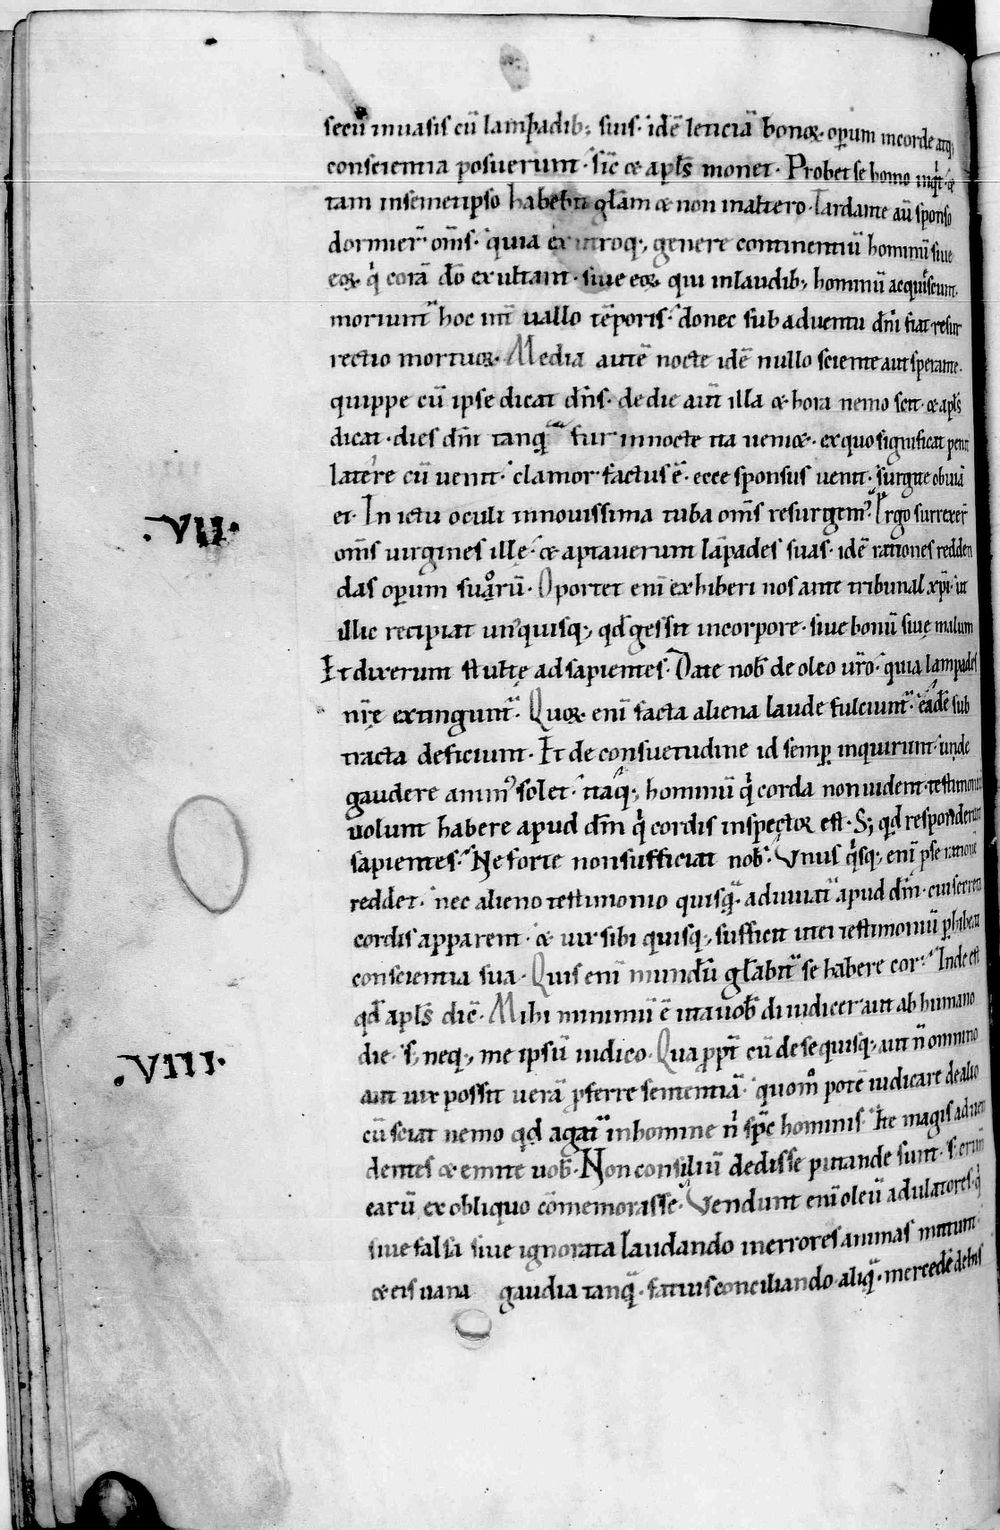 secū inuasis cū lampadib; suis. idē leticiā bonoꝝ. oꝑum incorde atq;
conscientia posuerunt. sic̄ & apl̄s monet. Probet se homo inqͥt. &
tam insemetipso habebit gl̄am & non inaltero. Tardante aū sponso
dormier̄ om̄s. quia ex utroq; genere continentiū hominū siue
eoꝝ qͥ corā dō exultant. siue eoꝝ qui inlaudib; hominū acquiescunt.
moriunt᷑ hoc int̄uallo tēporis. donec sub aduentu dn̄i fiat resur
rectio mortuoꝝ. Media autē nocte idē nullo sciente aut sperante.
quippe cū ipse dicat dn̄s. de die aūt illa & hora nemo scit. & apl̄s
dicat. dies dn̄i tanquā fur innocte ita ueniet. ex quo significat penit
latere cū uenit. clamor factus ē. ecce sponsus uenit. surgite obuiā
ei. In ictu oculi innouissima tuba om̄s resurgemꝰ. Ergo surrexer̄
om̄s uirgines ille. & aptauerunt lāpades suas. idē rationes redden
das oꝑum suarū. Oportet enī exhiberi nos ante tribunal xp̄i. ut
illic recipiat unꝰquisq; qd̄ gessit incorpore. siue bonū siue malum
Et dixerunt stultę ad sapientes. Date nob̄ de oleo ur̄o. quia lampades
nr̄ę extingunt᷑. Quoꝝ enī facta aliena laude fulciunt᷑. eadē sub
tracta deficiunt. Et de consuetudine id semꝑ inquirunt. unde
gaudere animꝰ solet. itaq; hominū qͥ corda non uident testimoniū
uolunt habere apud dm̄ qͥ cordis inspector est. S; qd̄ responderunt
sapientes. Ne forte nonsufficiat nob̄. Unus qͥsq; enī ꝓ se rationē
reddet. nec alieno testimonio quisquā adiuuat᷑ apud dm̄. cui secreta
cordis apparent. & uix sibi quisq; sufficit ut ei testimoniū ꝑhibeat
conscientia sua. Quis enī mundū gl̄abit᷑ se habere cor. Inde est
qd̄ apl̄s dic̄. Mihi minimū ē ut auob̄ diiudicer aut ab humano
die. s; neq; me ipsū iudico. Quaꝓpt̄ cū de se quisq; aut n̄ omnino
aut uix possit uerā ꝓferre sententiā. quomͦ potē iudicare de alio
cū sciat nemo qd̄ agat᷑ inhomine nͥ sp̄c hominis. Ite magis ad uen
dentes & emite uob̄. Non consiliū dedisse putande sunt. s; crim̄
earū exobliquo cōmemorasse. Vendunt enī oleū adulatores. qͥ
siue falsa siue ignorata laudando inerrores animas mittunt.
& eis uana gaudia tanquā fatuis conciliando. aliquā mercedē de his
.VII.
.VIII.